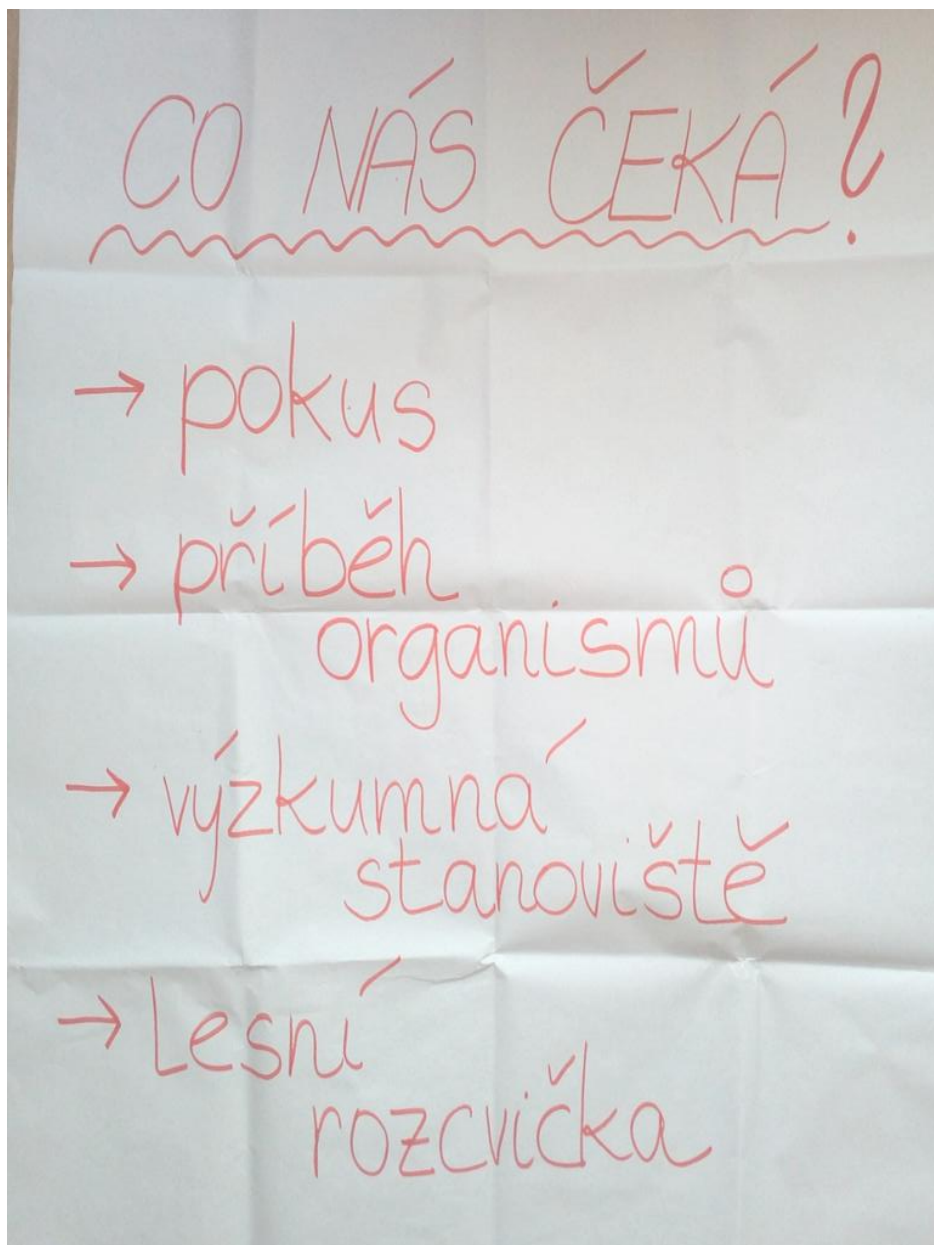 CO NÁS ČEKÁ?
→ pokus
→ příběh
organismů
→ výzkumná
stanoviště
→ Lesní
rozcvička